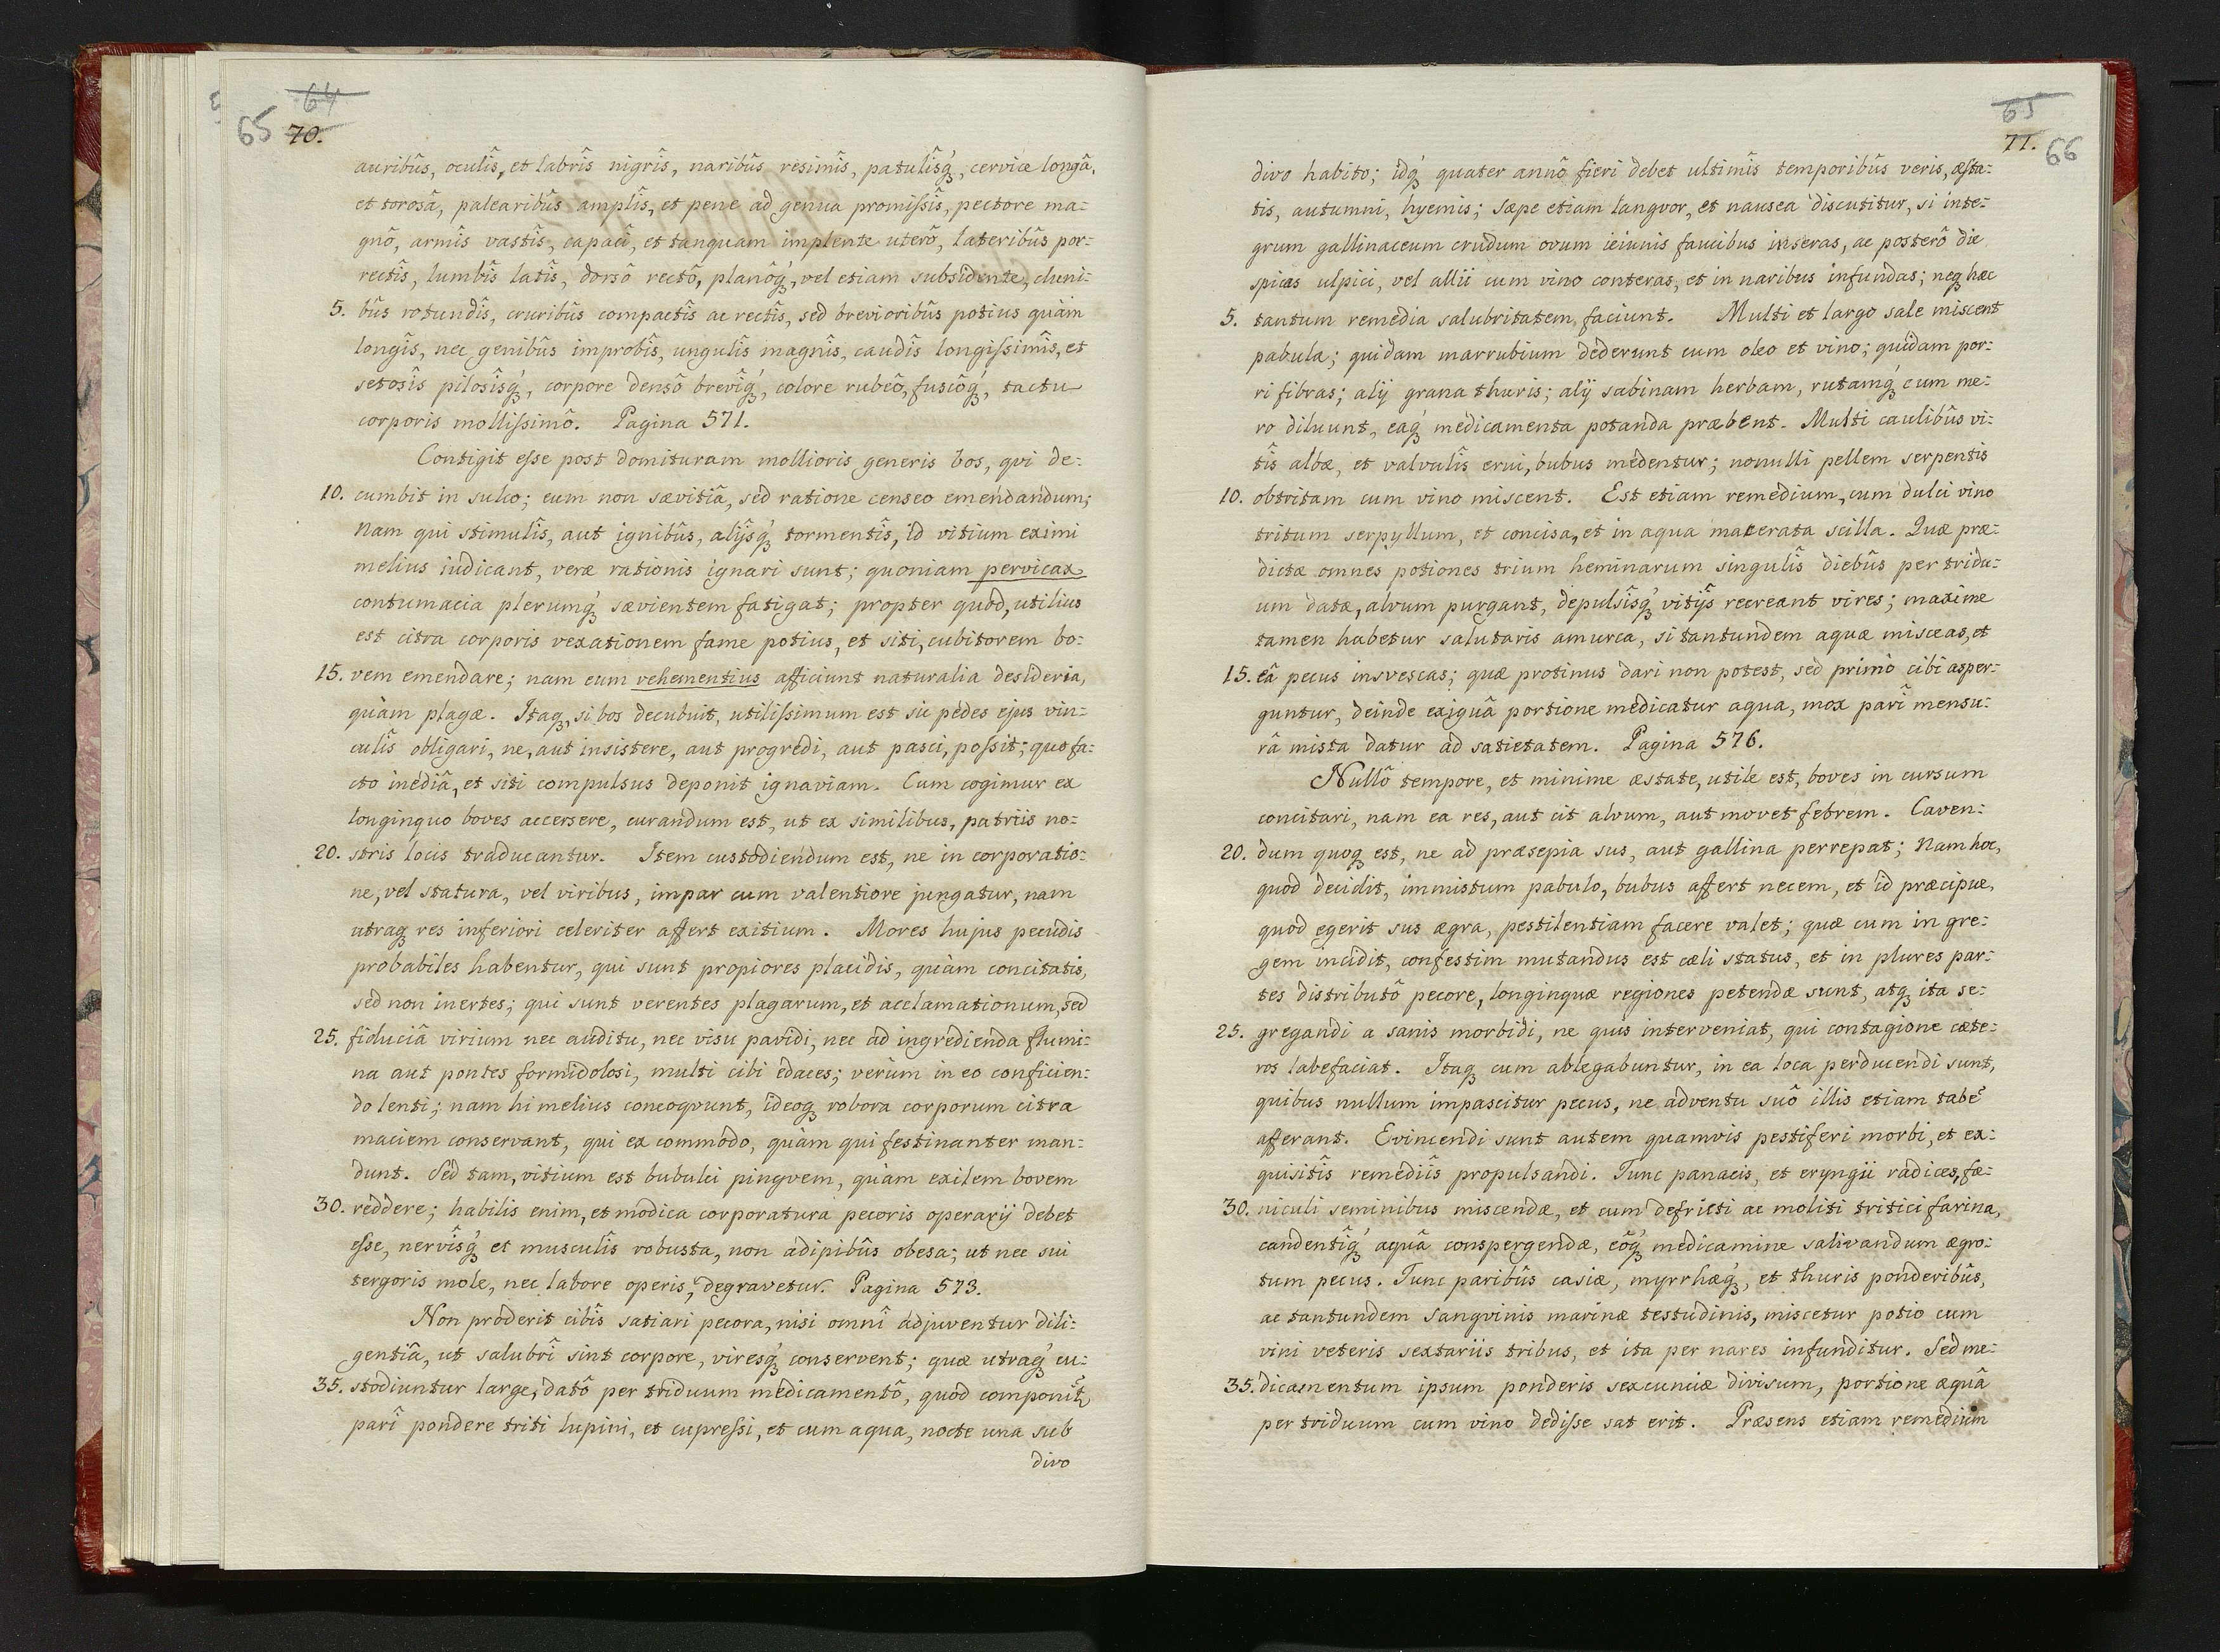 64
65 70.
auribûs, oculîs, et labrîs nigrîs, naribûs resimîs, patulîsq́, cervice longâ,
et torosâ, palearibûs amplîs, et pene ad genua promissîs, pectore ma-
gnô, armîs vastîs, capacî, et tanquam implente uterô, lateribûs por-
rectîs, lumbîs latîs, dorsô rectô, planôq́, vel etiam subsidente, cluni-
5. bûs rotundîs, cruribûs compactîs ac rectîs, sed brevioribûs potius quàm
longîs, nec genibûs improbîs, ungulîs magnîs, caudîs longissimîs, et
setosîs pilosîsq́, corpore densô brevîq́, colore rubeô, fuscôq́, tactu
corporis mollissimô. Pagina 571.
Contigit esse post domituram mollioris generis bos, qvi de-
10. cumbit in sulco; eum non sævitiâ, sed ratione censeo emendandum;
Nam qui stimulîs, aut ignibûs, alijsq́ tormentîs, id vitium eximi
melius iudicant, veræ rationis ignari sunt; quoniam pervicax
contumacia plerumq́ sævientem fatigat; propter quod, utilius
est citra corporis vexationem fame potius, et siti, cubitorem bo-
15. vem emendare; nam eum vehementius afficiunt naturalia desideria,
quàm plagæ. Itaq, si bos decubuit, utilissimum est sic pedes ejus vin-
culîs obligari, ne, aut insistere, aut progredi, aut pasci, possit; quo fa-
cto inediâ, et siti compulsus deponit ignaviam. Cum cogimur ex
longinquo boves accersere, curandum est, ut ex similibus, patriis no-
20. stris locis traducantur. Item custodiendum est, ne in corporatio-
ne, vel statura, vel viribus, impar cum valentiore jungatur, nam
utraq res inferiori celeriter affert exitium. Mores hujus pecudis
probabiles habentur, qui sunt propiores placidis, quàm concitatis,
sed non inertes; qui sunt verentes plagarum, et acclamationum, sed
25. fiduciâ virium nec auditu, nec visu pavidi, nec ad ingredienda flumi-
na aut pontes formidolosi, multi cibi edaces; verùm in eo conficien-
do lenti; nam hi melius concoqvunt, ideoq robora corporum citra
maciem conservant, qui ex commodo, quàm qui festinanter man-
dunt. Sed tam, vitium est bubulci pingvem, quàm exilem bovem
30. reddere; habilis enim, et modica corporatura pecoris operarij debet
esse, nervîsq́ et musculîs robusta, non adipibûs obesa; ut nec sui
tergoris mole, nec labore operis, degravetur. Pagina 573.
Non proderit cibîs satiari pecora, nisi omnî adjuventur dili-
gentiâ, ut salubrî sint corpore, viresq́ conservent; quæ utraq́ cu-
35. stodiuntur large, datô per triduum medicamentô, quod componit̃
parî pondere triti lupini, et cupressi, et cum aqua, nocte una sub
divo
65
71. 66
divo habito; idq́ quater annô fieri debet ultimîs temporibûs veris, æsta-
tis, autumni, hyemis; sæpe etiam langvor, et nausea discutitur, si inte-
grum gallinaceum crudum ovum ieiunis faucibus inseras, ac posterô die
spicas ulpici, vel allii cum vino conteras, et in naribus infundas; neq hæc
5. tantum remedia salubritatem faciunt. Multi et largo sale miscent
pabula; quidam marrubium dederunt cum oleo et vino; quidam por-
ri fibras; alij grana thuris; alij sabinam herbam, rutamq́ cum me-
ro diluunt, eaq́ medicamenta potanda præbent. Multi caulibûs vi-
tîs albæ, et valvulîs erui, bubus medentur; nonulli pellem serpentis
10. obtritam cum vino miscent. Est etiam remedium, cum dulci vino
tritum serpyllum, et concisa, et in aqua macerata scilla. Quæ præ-
dictæ omnes potiones trium heminarum singulîs diebûs per tridu-
um datæ, alvum purgant, depulsîsq́ vitijs recreant vires; maxime
tamen habetur salutaris amurca, si tantundem aquæ misceas, et
15. eâ pecus insvescas; quæ protinus dari non potest, sed primò cibi asper-
guntur, deinde exiguâ portione medicatur aqua, mox parî mensu-
râ mista datur ad satietatem. Pagina 576.
Nullô tempore, et minime æstate, utile est, boves in cursum
concitari, nam ea res, aut cit alvum, aut movet febrem. Caven-
20. dum quoq est, ne ad præsepia sus, aut gallina perrepat; Nam hoc,
quod decidit, immistum pabulo, bubus affert necem, et id præcipue,
quod egerit sus ægra, pestilentiam facere valet; quæ cum in gre-
gem incidit, confestim mutandus est cæli status, et in plures par-
tes distributô pecore, longinquæ regiones petendæ sunt, atq ita se-
25. gregandi a sanis morbidi, ne quis interveniat, qui contagione cæte-
ros labefaciat. Itaq cum ablegabuntur, in ea loca perducendi sunt,
quibus nullum impascitur pecus, ne adventu suô illis etiam tabẽ
afferant. Evincendi sunt autem quamvis pestiferi morbi, et ex-
quisitîs remediîs propulsandi. Tunc panacis, et eryngii radices, fæ-
30. niculi seminibus miscendæ, et cum defricti ac moliti tritici farina,
candentîq́ aquâ conspergendæ, eôq́ medicamine salivandum ægro-
tum pecus. Tunc paribûs casiæ, myrrhæq́, et thuris ponderibûs,
ac tantundem sangvinis marinæ testudinis, miscetur potio cum
vini veteris sextariis tribus, et ita per nares infunditur. Sed me-
35. dicamentum ipsum ponderis sexcunciæ divisum, portione æquâ
per triduum cum vino dedisse sat erit. Præsens etiam remedium